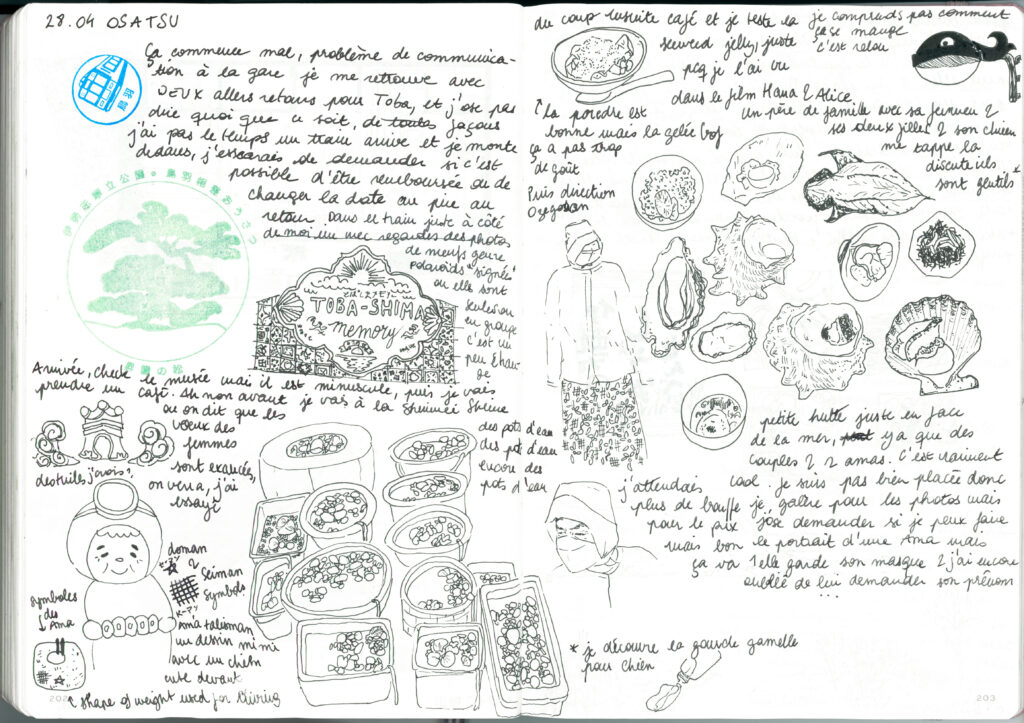 28.04 OSATSU
Ça commence mal, problème de communica-
tion à la gare je me retrouve avec
DEUX allers retours pour Toba, et j'ose pas
dire quoi que ce soit, de toutes façons
j'ai pas le temps un train arrive et je monte
dedans, j'essaierais de demander si c'est
possible d'être remboursée ou de
changer la date au pire au
retour Dans le train juste à côté
de moi un mec regardes des photos
de meufs genre
polaroïds "signées"
où elle sont
seules ou
en groupe
c'est un
peu étran
ge
TOBA-SHIMA
memory
Arrivée, check le musée mais il est minuscule, puis je vais
prendre un café. Ah non avant je vais à la Shinmei Shrine
où on dit que les
vœux des
femmes
sont exaucés,
on verra, j'ai
essayé
des tuiles j'crois?
des pots d'eau
des pots d'eau
encore des
pots d'eau
doman
&
Seiman
Symbols
symboles
des
Ama
Ama talisman
un dessin mimi
avec un chien
cute devant
shape of weight used for diving
202
du coup ensuite café et je teste la
seeweed jelly, juste
pcq je l'ai vu
dans le film Hana & Alice.
je comprends pas comment
ça se mange
c'est relou
La poudre est
bonne mais la gelée bof
ça a pas trop
de goût
Puis direction
Ozegosan
un père de famille avec sa femme &
ses deux filles & son chien
me tappe la
discute ils
sont gentils *
petite hutte juste en face
de la mer, y a que des
couples & 2 amas. C'est vraiment
cool. je suis pas bien placée donc
je galère pour les photos mais
j'ose demander si je peux faire
le portrait d'une Ama mais
elle garde son masque & j'ai encore
oublié de lui demander son prénom
...
j'attendais
plus de bouffe
pour le prix
mais bon
ça va !
* je découvre la gourde gamelle
pour chien
203